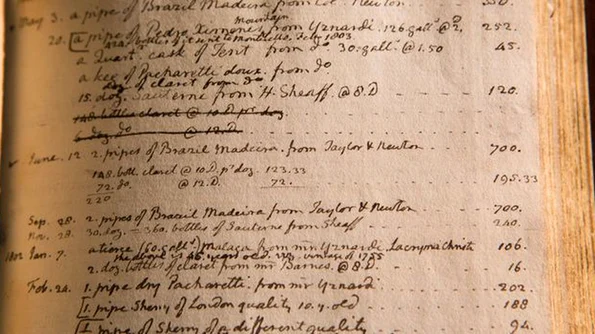 May 3. a pipe of Brazil Madeira from Newton 350.
mountain
20. [a pipe of Pedro Ximenes from Yznardi. 126. galls @ 2. D 252.
bottles of it sent to Monticello. Feb. 1803.
a Quart. cask of Tent from do 30. gall. @ 1.50 45.
a keg of Pacharetti doux. from do
doz. of claret from do
15. doz. Sauterne from H. Sheaff. @ 8. D 120.
148. bottles claret @ 10. D pr. doz
6 doz. do @ 12. D.
June. 12. 2. pipes of Brazil Madeira. from Taylor & Newton 700.
148. bott. claret @ 10. D. pr. doz. 123.33
72. do. @ 12. D. 72. 195.33
220
Sep. 28. 2. pipes of Brazil Madeira from Taylor & Newton 700.
Nov. 28. 30. doz. = 360. bottles of Sauterne from Sheaff 240.
1802 Jan. 7. a tierce (60. galls.) malaga from mr Yznardi Lacryma Christi 106.
the above is 46. years old. viz. vintage of 1755
2. doz. bottles of claret from mr Barnes. @ 8. D. 16.
Feb. 24. 1. pipe dry Pacharetti. from mr Yznardi 202
[1. pipe Sherry of London quality 10. y. old 188
[1. pipe of Sherry of a different quality 94.